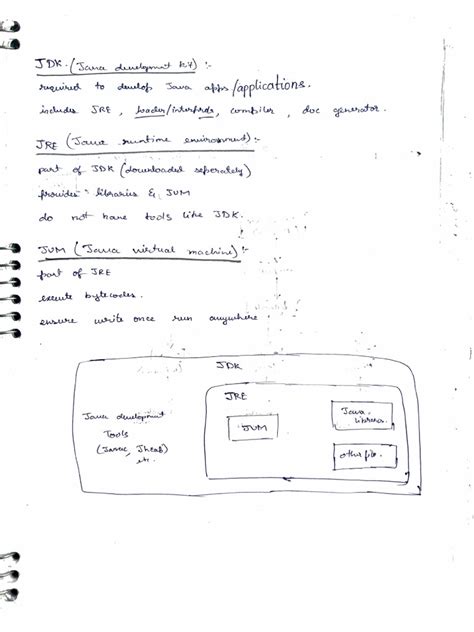 JDK. (Java development kit) :-
required to develop Java apps/applications.
includes JRE, loader/interprds, compiler, doc generator.
JRE (Java runtime environment):-
part of JDK (downloaded seperately)
provides libraries & JVM
do not have tools like JDK.
JVM (Java virtual machine):-
part of JRE
execute bytecodes.
ensure write once run anywhere
JDK
JRE
Java development
Tools
(Javac, Jheab)
etc.
JVM
Java
libreres.
other file.